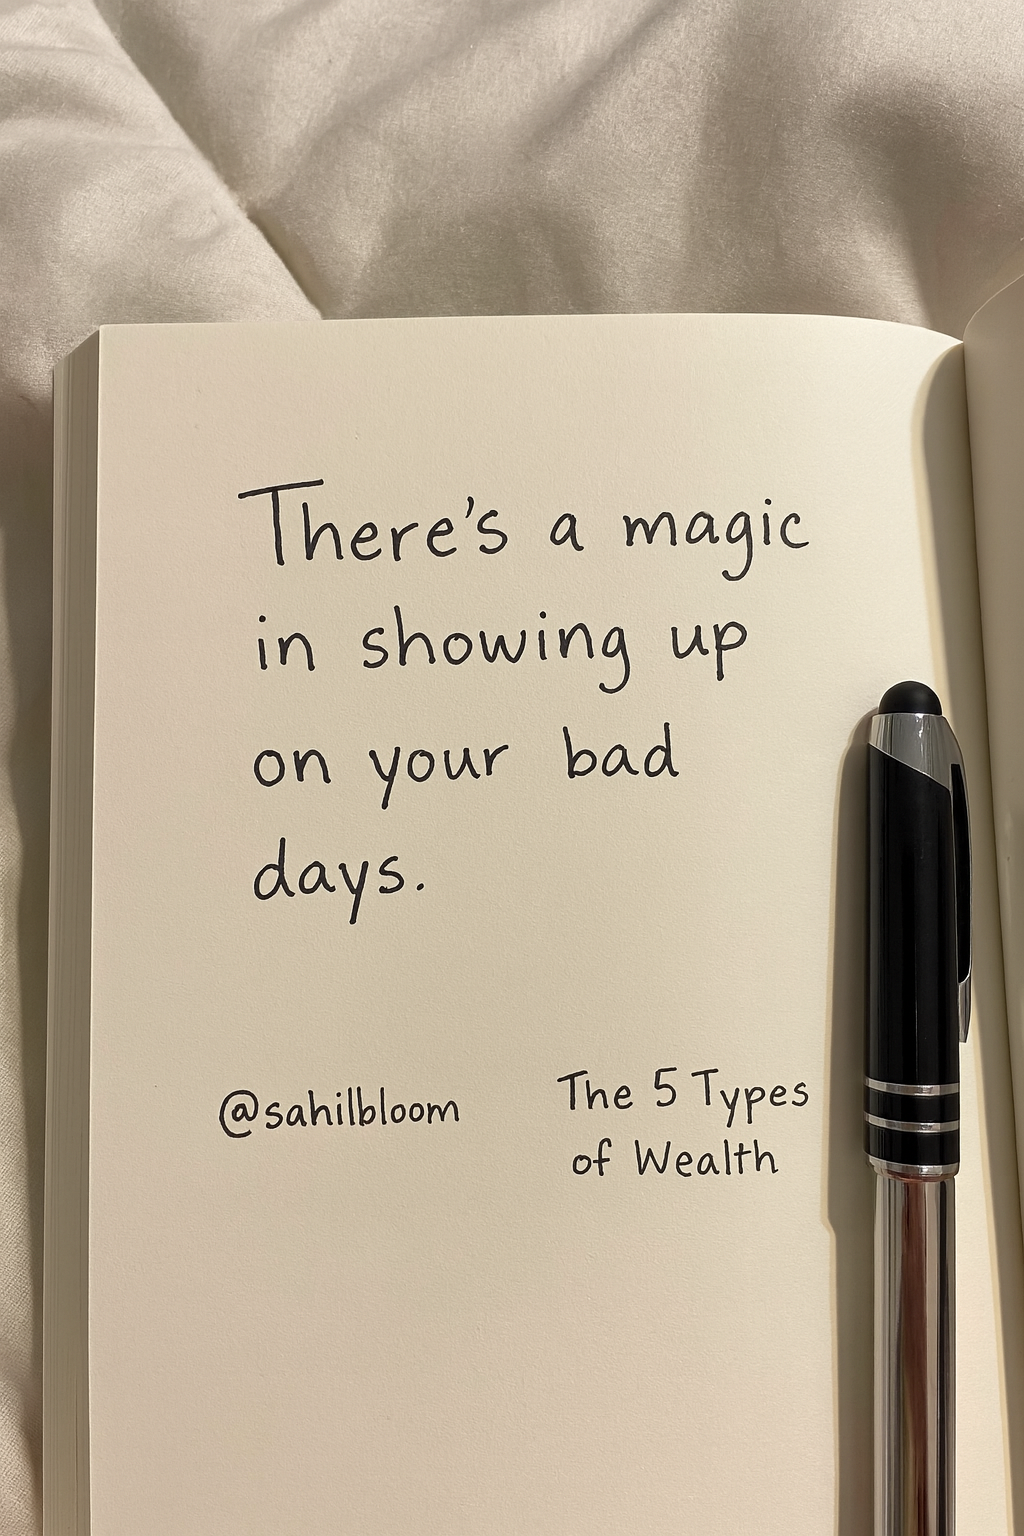 There's a magic
in showing up
on your bad
days.
@sahilbloom
The 5 Types
of Wealth